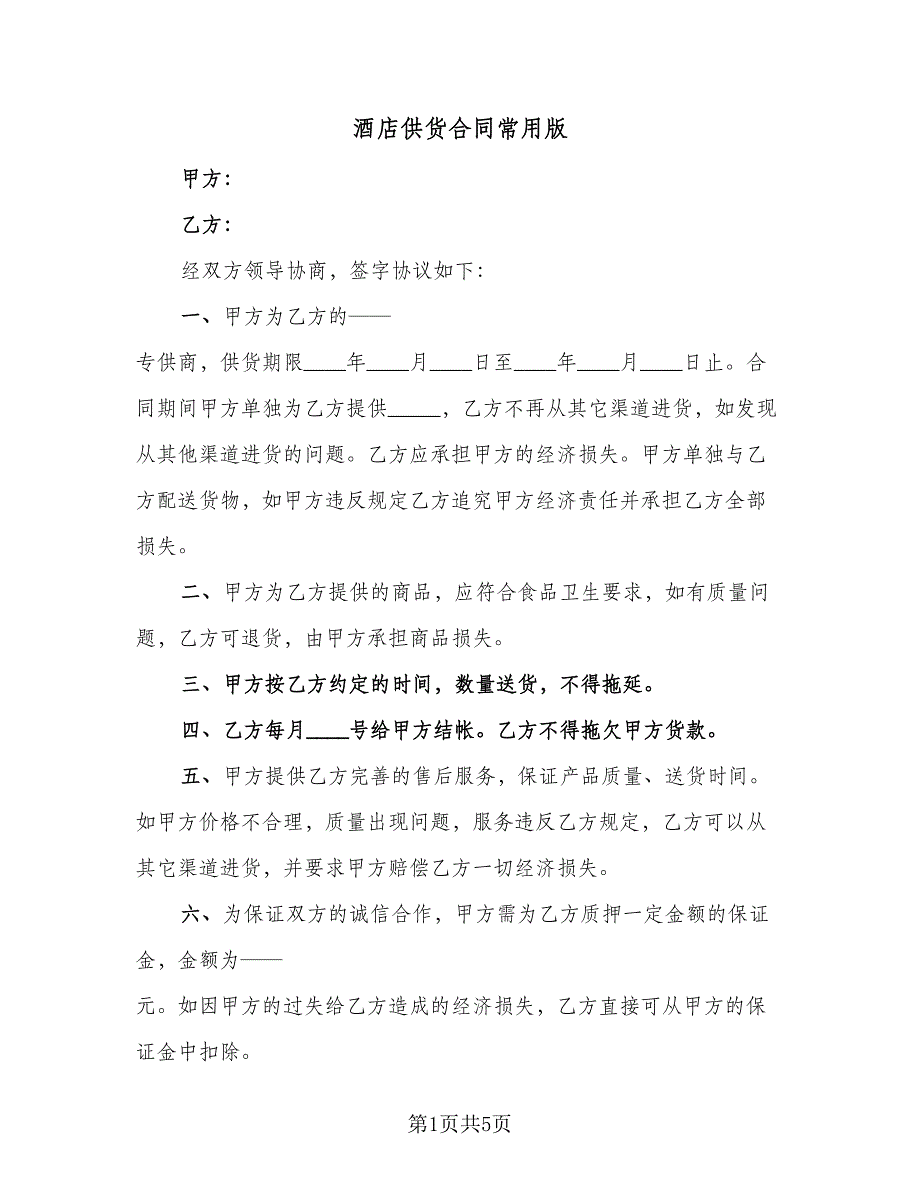 酒店供货合同常用版
甲方：
乙方：
经双方领导协商，签字协议如下：
一、甲方为乙方的——
专供商，供货期限____年____月____日至____年____月____日止。合
同期间甲方单独为乙方提供_____，乙方不再从其它渠道进货，如发现
从其他渠道进货的问题。乙方应承担甲方的经济损失。甲方单独与乙
方配送货物，如甲方违反规定乙方追究甲方经济责任并承担乙方全部
损失。
二、甲方为乙方提供的商品，应符合食品卫生要求，如有质量问
题，乙方可退货，由甲方承担商品损失。
三、甲方按乙方约定的时间，数量送货，不得拖延。
四、乙方每月____号给甲方结帐。乙方不得拖欠甲方货款。
五、甲方提供乙方完善的售后服务，保证产品质量、送货时间。
如甲方价格不合理，质量出现问题，服务违反乙方规定，乙方可以从
其它渠道进货，并要求甲方赔偿乙方一切经济损失。
六、为保证双方的诚信合作，甲方需为乙方质押一定金额的保证
金，金额为——
元。如因甲方的过失给乙方造成的经济损失，乙方直接可从甲方的保
证金中扣除。
第1页共5页